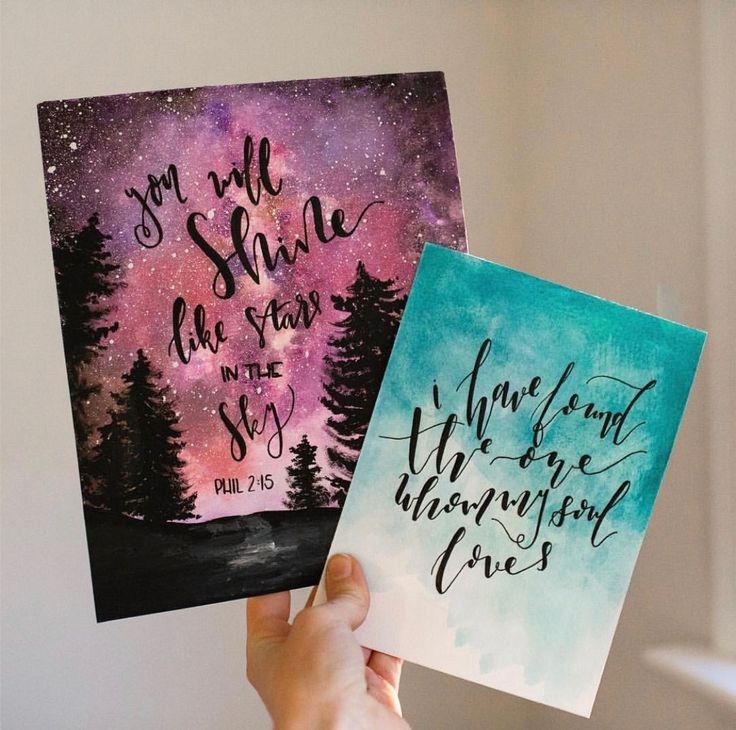 you will
Shine
like stars
IN THE
Sky
PHIL 2:15
i have found
the one
whom my soul
loves